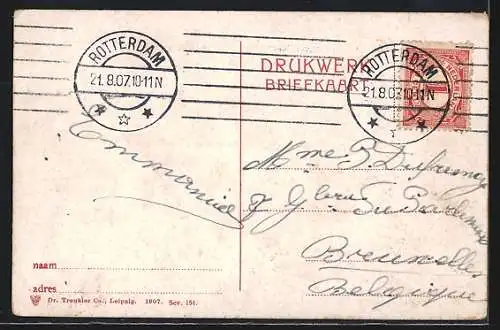 ROTTERDAM
21.8.07.10-11N
DRUKWERK
BRIEFKAART
ROTTERDAM
21.8.07.10-11N
1
Emmanuel
Mme
Bruxelles
Belgique
naam
adres
Dr. Trenkler Co., Leipzig. 1907. Ser. 151.